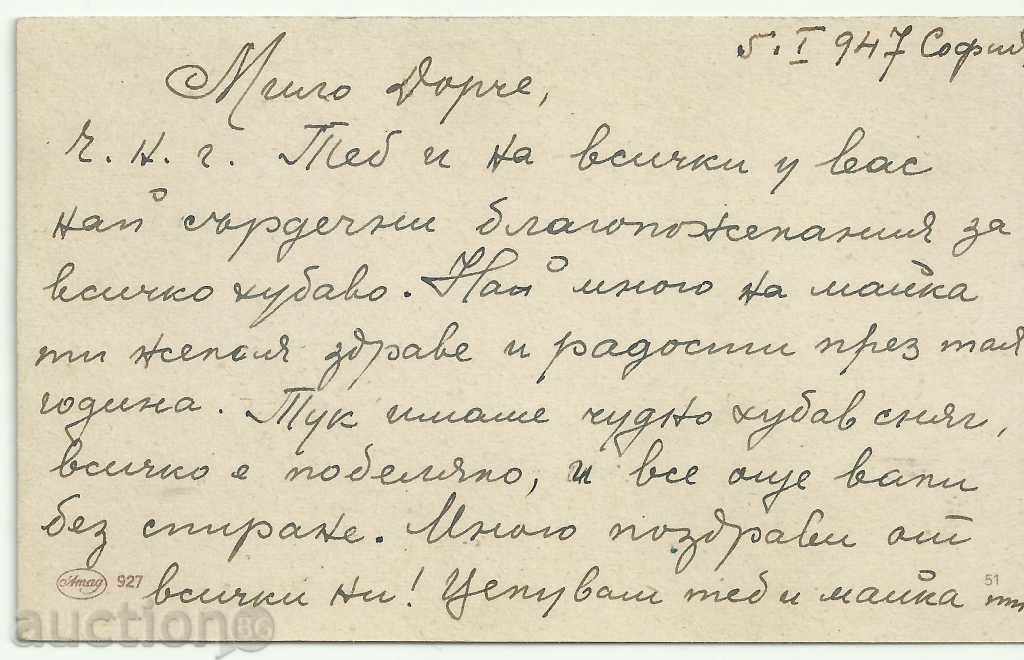 5. I 947 София
Мило Дорче,
Ч. н. г. Теб и на всички у вас
най сърдечни благопожелания за
всичко хубаво. Най много на майка
ти желая здраве и радости през тая
година. Тук имаше чудно хубав сняг,
всичко е побеляло, и все още вали
без спиране. Много поздрави от
всички ни! Целувам теб и майка ти
Amag 927
51
auction BG